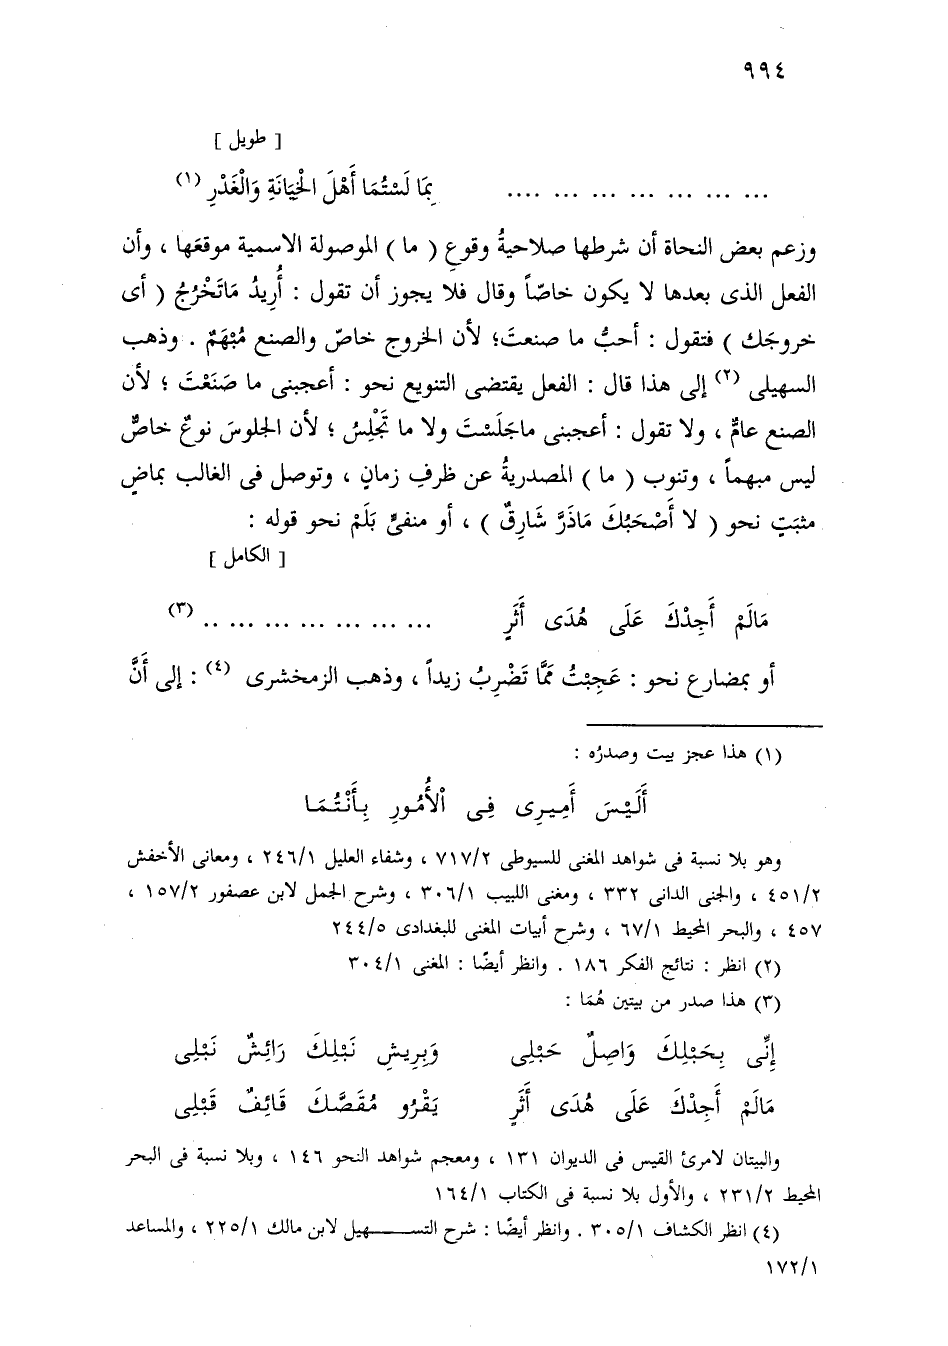 ٩٩٤
[ طويل ]
... ... ... ... ... ... .... بِمَا لَسْتُمَا أَهْلَ الْخِيَانَةِ وَالْغَدْرِ (١)
وزعم بعض النحاة أن شرطها صلاحيةُ وقوعِ ( ما ) الموصولة الاسمية موقعَها ، وأن
الفعل الذى بعدها لا يكون خاصّاً وقال فلا يجوز أن تقول : أُرِيدُ مَاتَخْرُجُ ( أى
خروجَك ) فتقول : أحبُّ ما صنعتَ؛ لأن الخروج خاصّ والصنع مُبْهَمٌ . وذهب
السهيلى (٢) إلى هذا قال : الفعل يقتضى التنويع نحو : أعجبنى ما صَنَعْتَ ؛ لأن
الصنع عامٌّ ، ولا تقول : أعجبنى ماجَلَسْتَ ولا ما تَجْلِسُ ؛ لأن الجلوسَ نوعٌ خاصٌّ
ليس مبهماً ، وتنوب ( ما ) المصدريةُ عن ظرفِ زمانٍ ، وتوصل فى الغالب بماضٍ
مثبَتٍ نحو ( لا أَصْحَبُكَ مَاذَرَّ شَارِقٌ ) ، أو منفىٍّ بَلَمْ نحو قوله :
[ الكامل ]
مَالَمْ أَجِدْكَ عَلَى هُدَى أَثَرٍ ... ... ... ... ... ... ... .. (٣)
أو بمضارع نحو : عَجِبْتُ مَمَّا تَضْرِبُ زيداً ، وذهب الزمخشرى (٤) : إلى أَنَّ
(١) هذا عجز بيت وصدرُه :
أَلَيْسَ أَمِيرِى فِى الْأُمُورِ بِأَنْتُمَا
وهو بلا نسبة فى شواهد المغنى للسيوطى ٧١٧/٢ ، وشفاء العليل ٢٤٦/١ ، ومعانى الأخفش
٤٥١/٢ ، والجنى الدانى ٣٣٢ ، ومغنى اللبيب ٣٠٦/١ ، وشرح الجمل لابن عصفور ١٥٧/٢ ،
٤٥٧ ، والبحر المحيط ٦٧/١ ، وشرح أبيات المغنى للبغدادى ٢٤٤/٥
(٢) انظر : نتائج الفكر ١٨٦ . وانظر أيضًا : المغنى ٣٠٤/١
(٣) هذا صدر من بيتين هُمَا :
إِنِّى بِحَبْلِكَ وَاصِلٌ حَبْلِى وَبِرِيشِ نَبْلِكَ رَائِشٌ نَبْلِى
مَالَمْ أَجِدْكَ عَلَى هُدَى أَثَرٍ يَقْرُو مُقَصَّكَ قَائِفٌ قَبْلِى
والبيتان لامرئ القيس فى الديوان ١٣١ ، ومعجم شواهد النحو ١٤٦ ، وبلا نسبة فى البحر
المحيط ٢٣١/٢ ، والأول بلا نسبة فى الكتاب ١٦٤/١
(٤) انظر الكشاف ٣٠٥/١ . وانظر أيضًا : شرح التســـهيل لابن مالك ٢٢٥/١ ، والمساعد
١٧٢/١